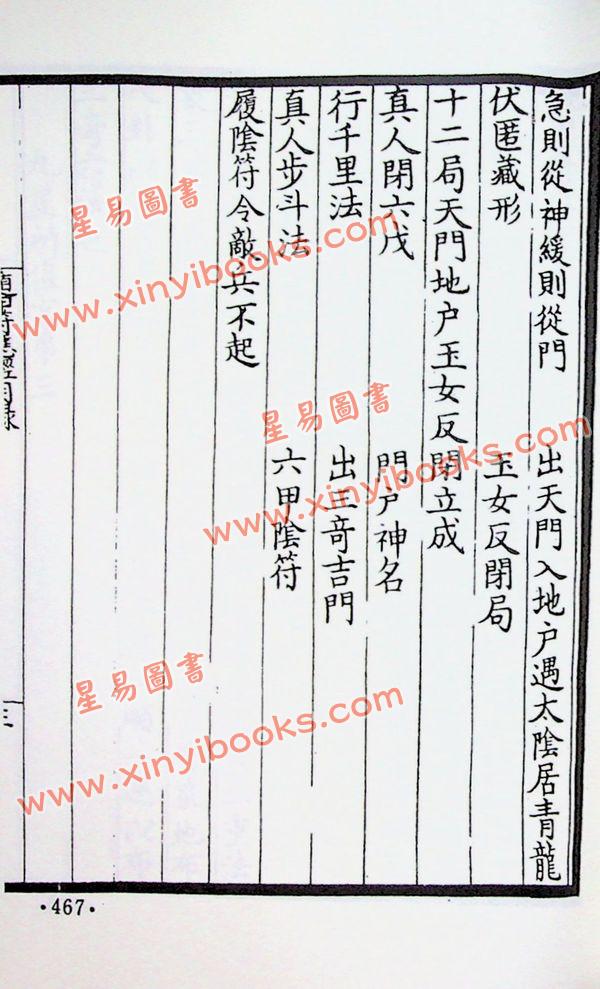 急則從神緩則從門　出天門入地户遇太陰居青龍
伏匿藏形　玉女反閉局
十二局天門地户玉女反閉立成
真人閉六戊　門户神名
行千里法　出三奇吉門
真人步斗法　六甲陰符
履陰符令敵兵不起
三
·467·
星易圖書
www.xinyibooks.com
星易圖書
www.xinyibooks.com
星易圖書
www.xinyibooks.com